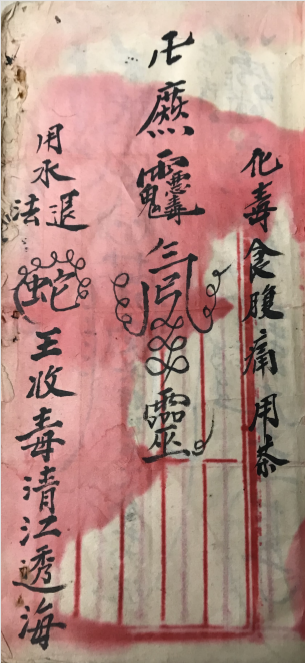 化毒食腹痛用茶
靈
用水退法
蛇王收毒清江透海